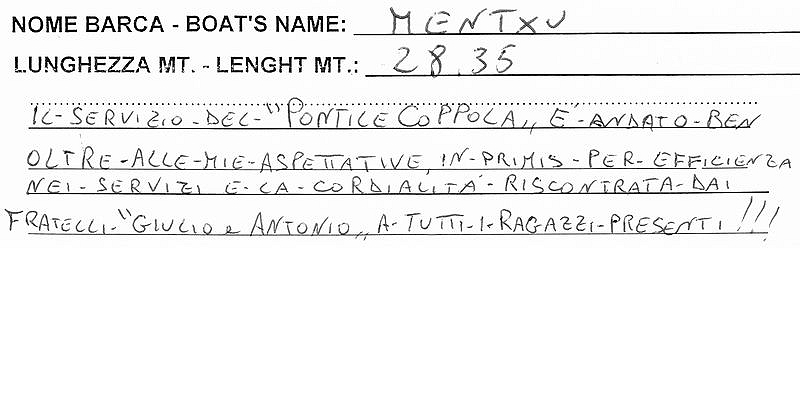 NOME BARCA - BOAT'S NAME: MENTXU
LUNGHEZZA MT. - LENGHT MT.: 28.35
IL-SERVIZIO-DEL-"PONTILE COPPOLA„ E'-ANDATO-BEN
OLTRE-ALLE-MIE-ASPETTATIVE, IN-PRIMIS-PER-EFFICIENZA
NEI-SERVIZI E-LA-CORDIALITA'-RISCONTRATA-DAI
FRATELLI-"GIULIO e ANTONIO„ A-TUTTI-I-RAGAZZI-PRESENTI!!!